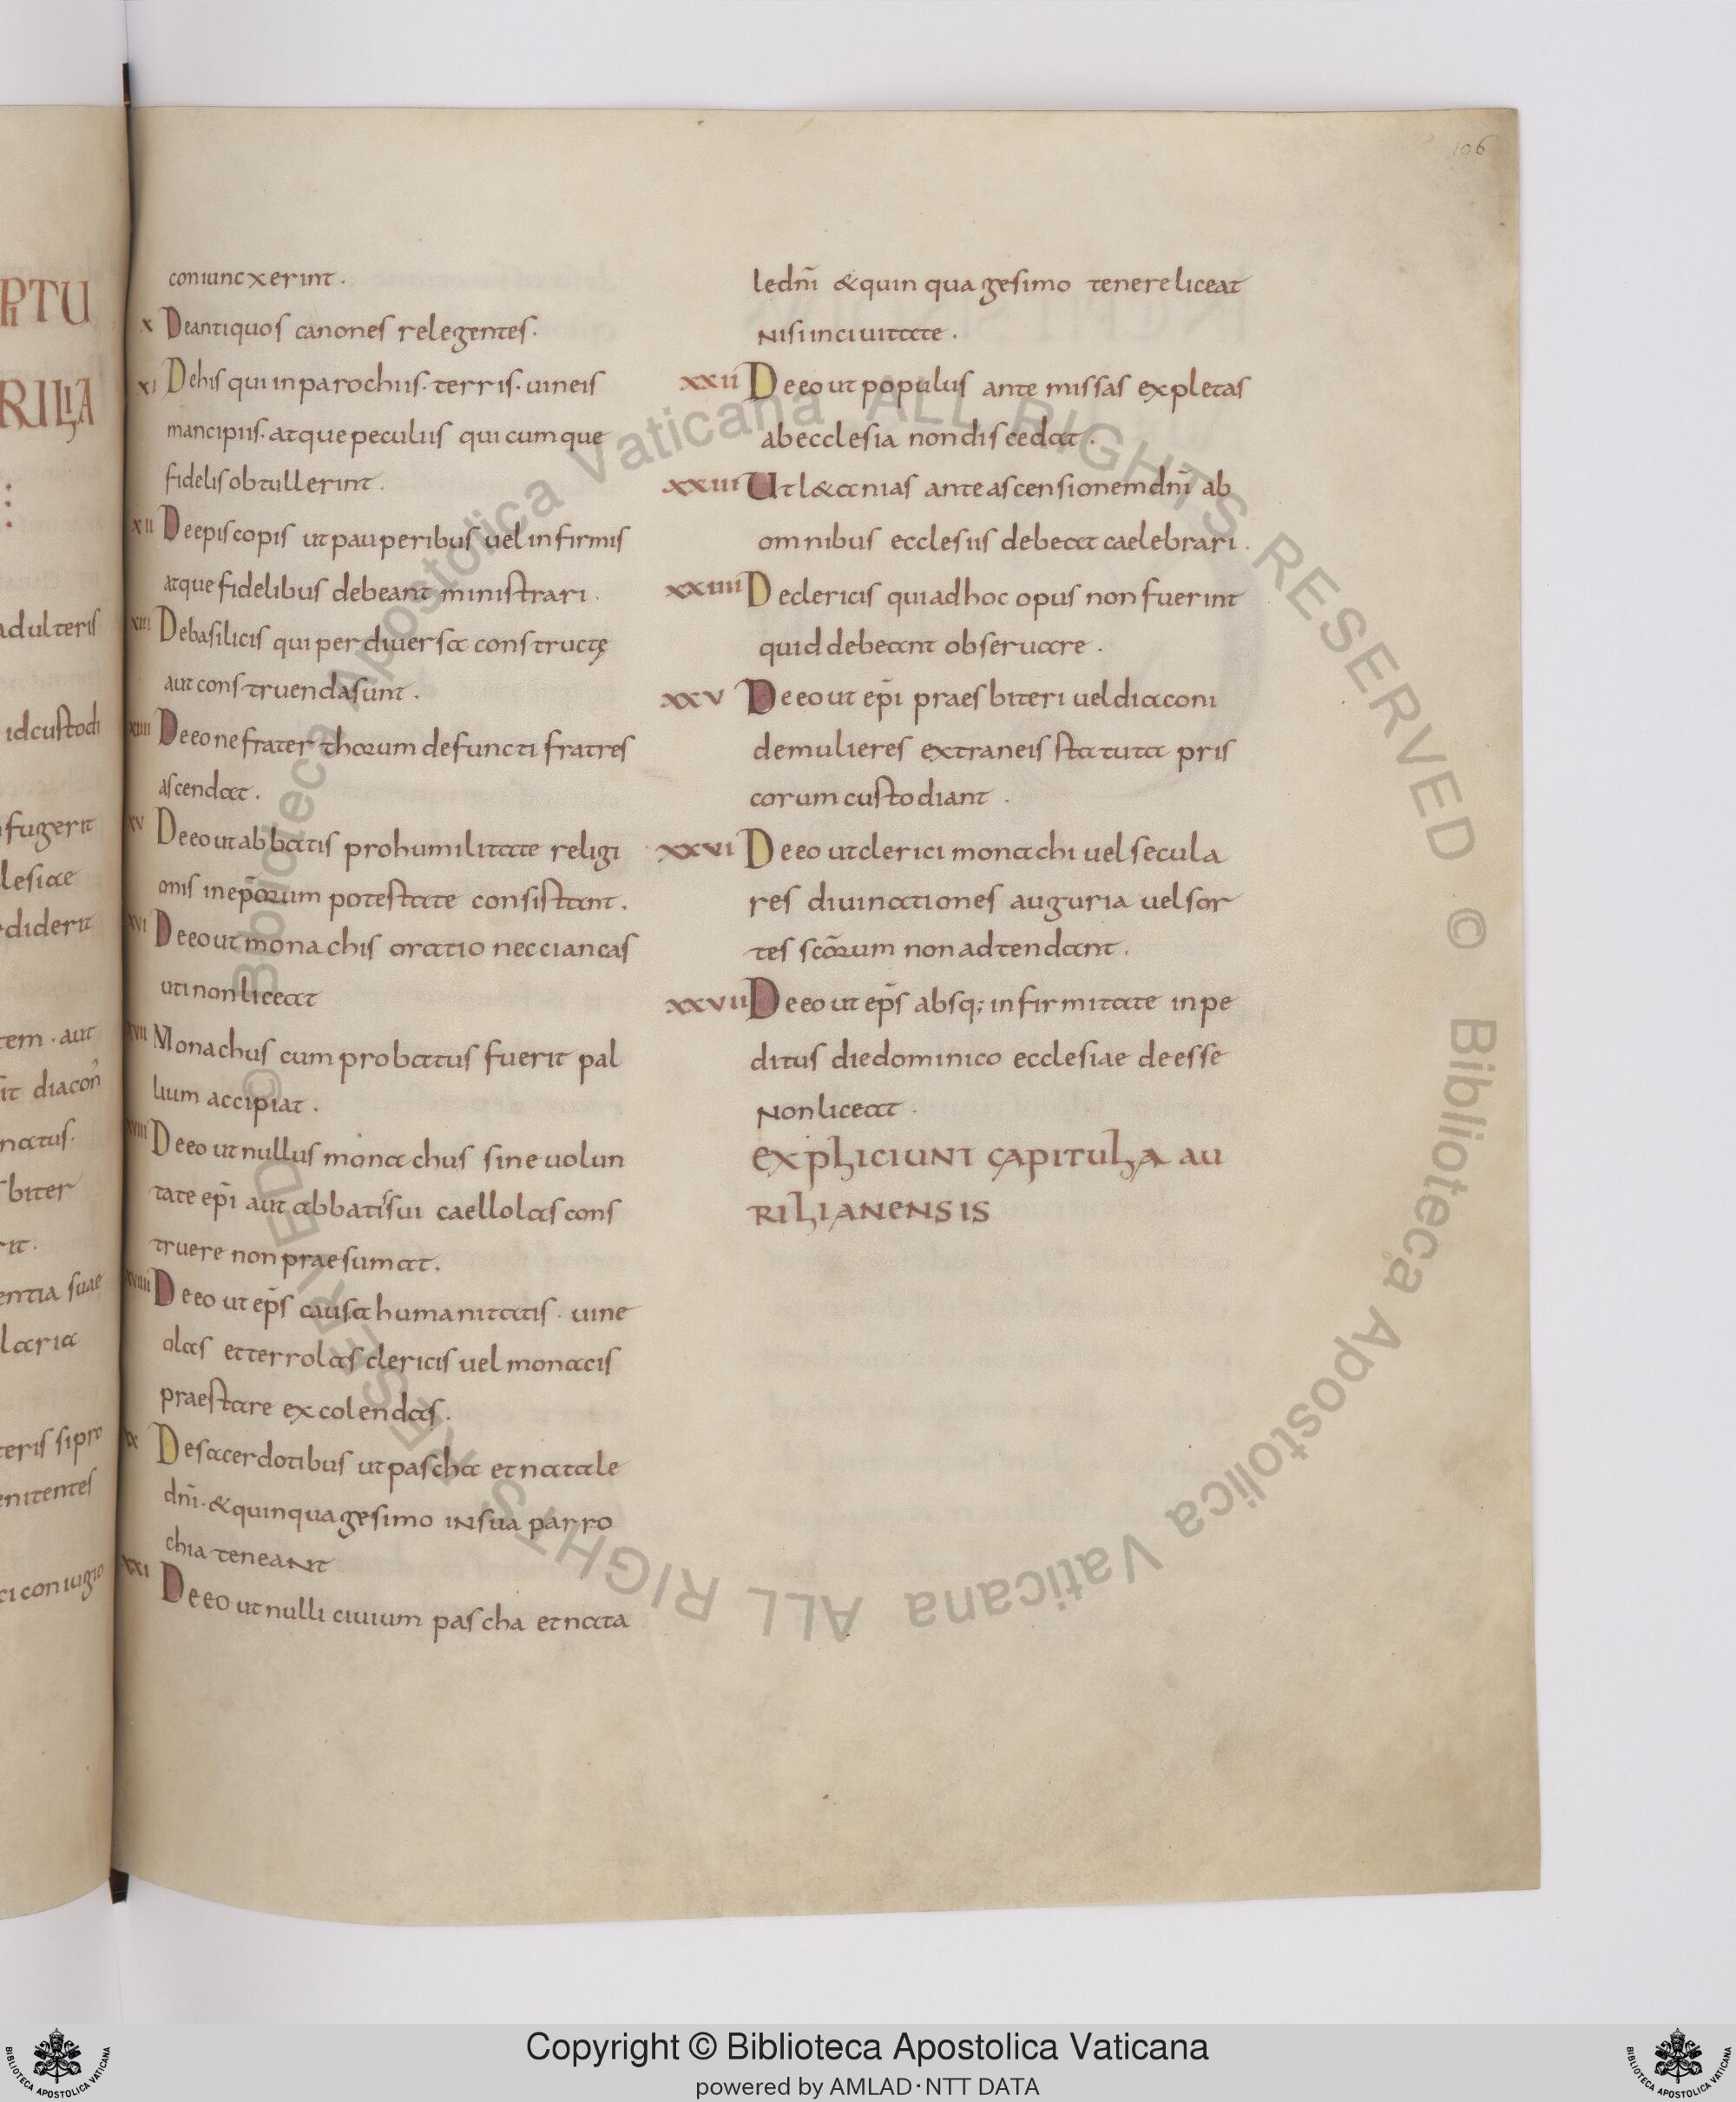 106
RTU
RILIA
adulteris
idcustodi
fugerit
lesiae
diderit
tem · aut
it diacon̄
natus·
biter
rit·
entia suae
laria
teris sipro
enitentes
ci coniugio
coniuncxerint·
x Deantiquos canones relegentes·
xi Dehis qui inparochiis· terris· uineis
mancipiis· atquepeculiis quicumque
fidelisobtullerint·
xii Deepiscopis utpauperibus uelinfirmis
atquefidelibus debeant ministrari·
xiii Debasilicis qui perdiuersa constructę
autconstruendasunt·
xiiii Deeonefrater thorum defuncti fratres
ascendat·
xv Deeoutabbatis prohumilitate religi
onis inep̄orum potestate consistant·
xvi Deeoutmonachis oratio necciancas
utinonliceat
xvii Monachus cumprobatus fuerit pal
lium accipiat·
xviii Deeo utnullus monachus sineuolun
tate ep̄i aut abbatissui caellolas cons
truere nonpraesumat·
xviiii Deeo ut ep̄s causahumanitatis· uine
olas etterrolas clericis uel monacis
praestare excolendas·
xx Desacerdotibus utpascha etnatale
dn̄i· &quinquagesimo insua parro
chia teneant
xxi Deeo utnulli ciuium pascha etnata
ledn̄i &quinquagesimo tenereliceat
nisiinciuitate·
xxii Deeout populus ante missas expletas
abecclesia nondiscedat·
xxiii Utl&anias anteascensionemdn̄i ab
omnibus ecclesiis debeat caelebrari·
xxiiii Declericis quiadhoc opus nonfuerint
quid debeant obseruare·
xxv Deeout ep̄i praesbiteri ueldiaconi
demulieres extraneis statuta pris
corumcustodiant·
xxvi Deeo utclerici monachi uelsecula
res diuinationes auguria uelsor
tes sc̄orum nonadtendant·
xxvii Deeout ep̄s absq; infirmitate inpe
ditus diedominico ecclesiae deesse
nonliceat·
EXPLICIUNT CAPITULA AU
RILIANENSIS
© Biblioteca Apostolica Vaticana ALL RIGHTS RESERVED © Biblioteca Apostolica Vaticana ALL RIGHTS RESERVED
Copyright © Biblioteca Apostolica Vaticana
powered by AMLAD·NTT DATA
BIBLIOTECA APOSTOLICA VATICANA
BIBLIOTECA APOSTOLICA VATICANA